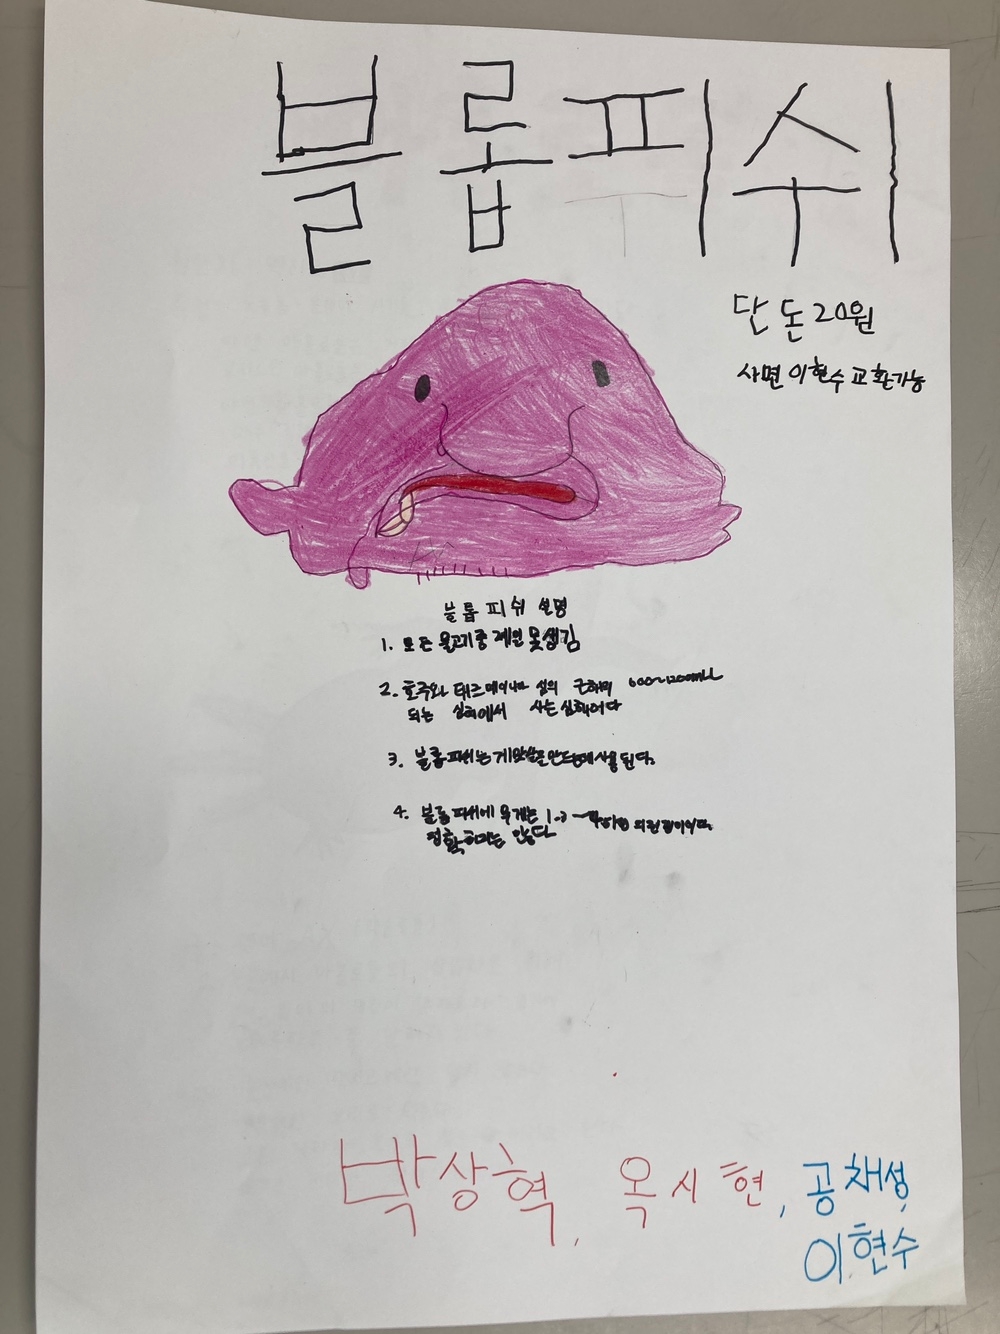 블롭피쉬
단 돈 20원
사면 이현수 교환가능
블롭피쉬 설명
1. 모든 물고기중 제일 못생김
2. 호주와 태즈메이니아 섬의 근해의 600~1200m
되는 심해에서 사는 심해어다
3. 블롭피쉬는 만드는데 사용 된다.
4. 블롭피쉬에 무게는
정확하지는 않다
박상혁, 옥시현, 공채성,
이현수